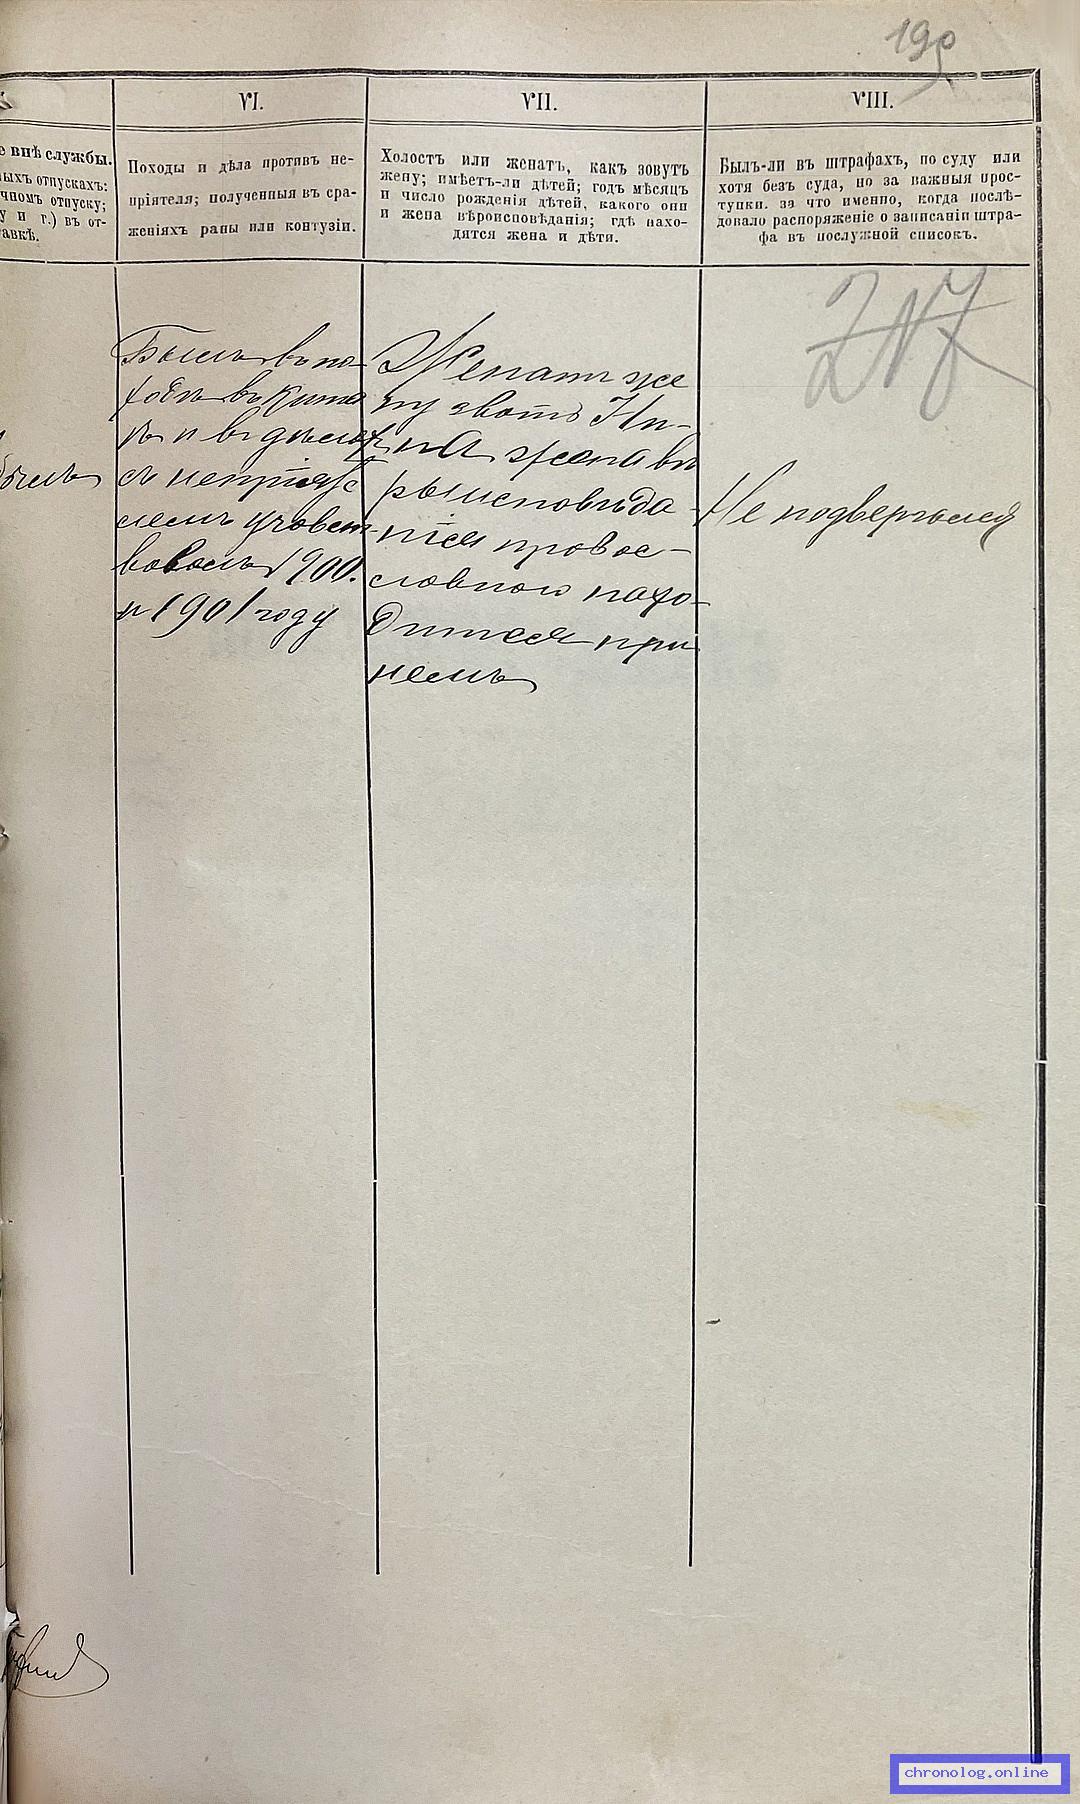 199
VI.
VII.
VIII.
е внѣ службы.
ыхъ отпускахъ:
чномъ отпуску;
у и г.) въ от-
авкѣ.
Походы и дѣла противъ не-
пріятеля; полученныя въ сра-
женіяхъ раны или контузіи.
Холостъ или женатъ, какъ зовутъ
жену; имѣетъ-ли дѣтей; годъ мѣсяцъ
и число рожденія дѣтей, какого они
и жена вѣроисповѣданія; гдѣ нахо-
дятся жена и дѣти.
Былъ-ли въ штрафахъ, по суду или
хотя безъ суда, но за важныя прос-
тупки, за что именно, когда послѣ-
довало распоряженіе о записаніи штра-
фа въ послужной списокъ.
былъ
Былъ въ по-
ходѣ въ Кита
ѣ и въ дѣлах
съ непріяте
лемъ участ-
вовалъ 1900.
и 1901 году
Женатъ же
ну звать Ни-
на жена вѣ
рыисповѣда
нія провос-
лавного нахо-
дится при
немъ
Не подвергался
chronolog.online